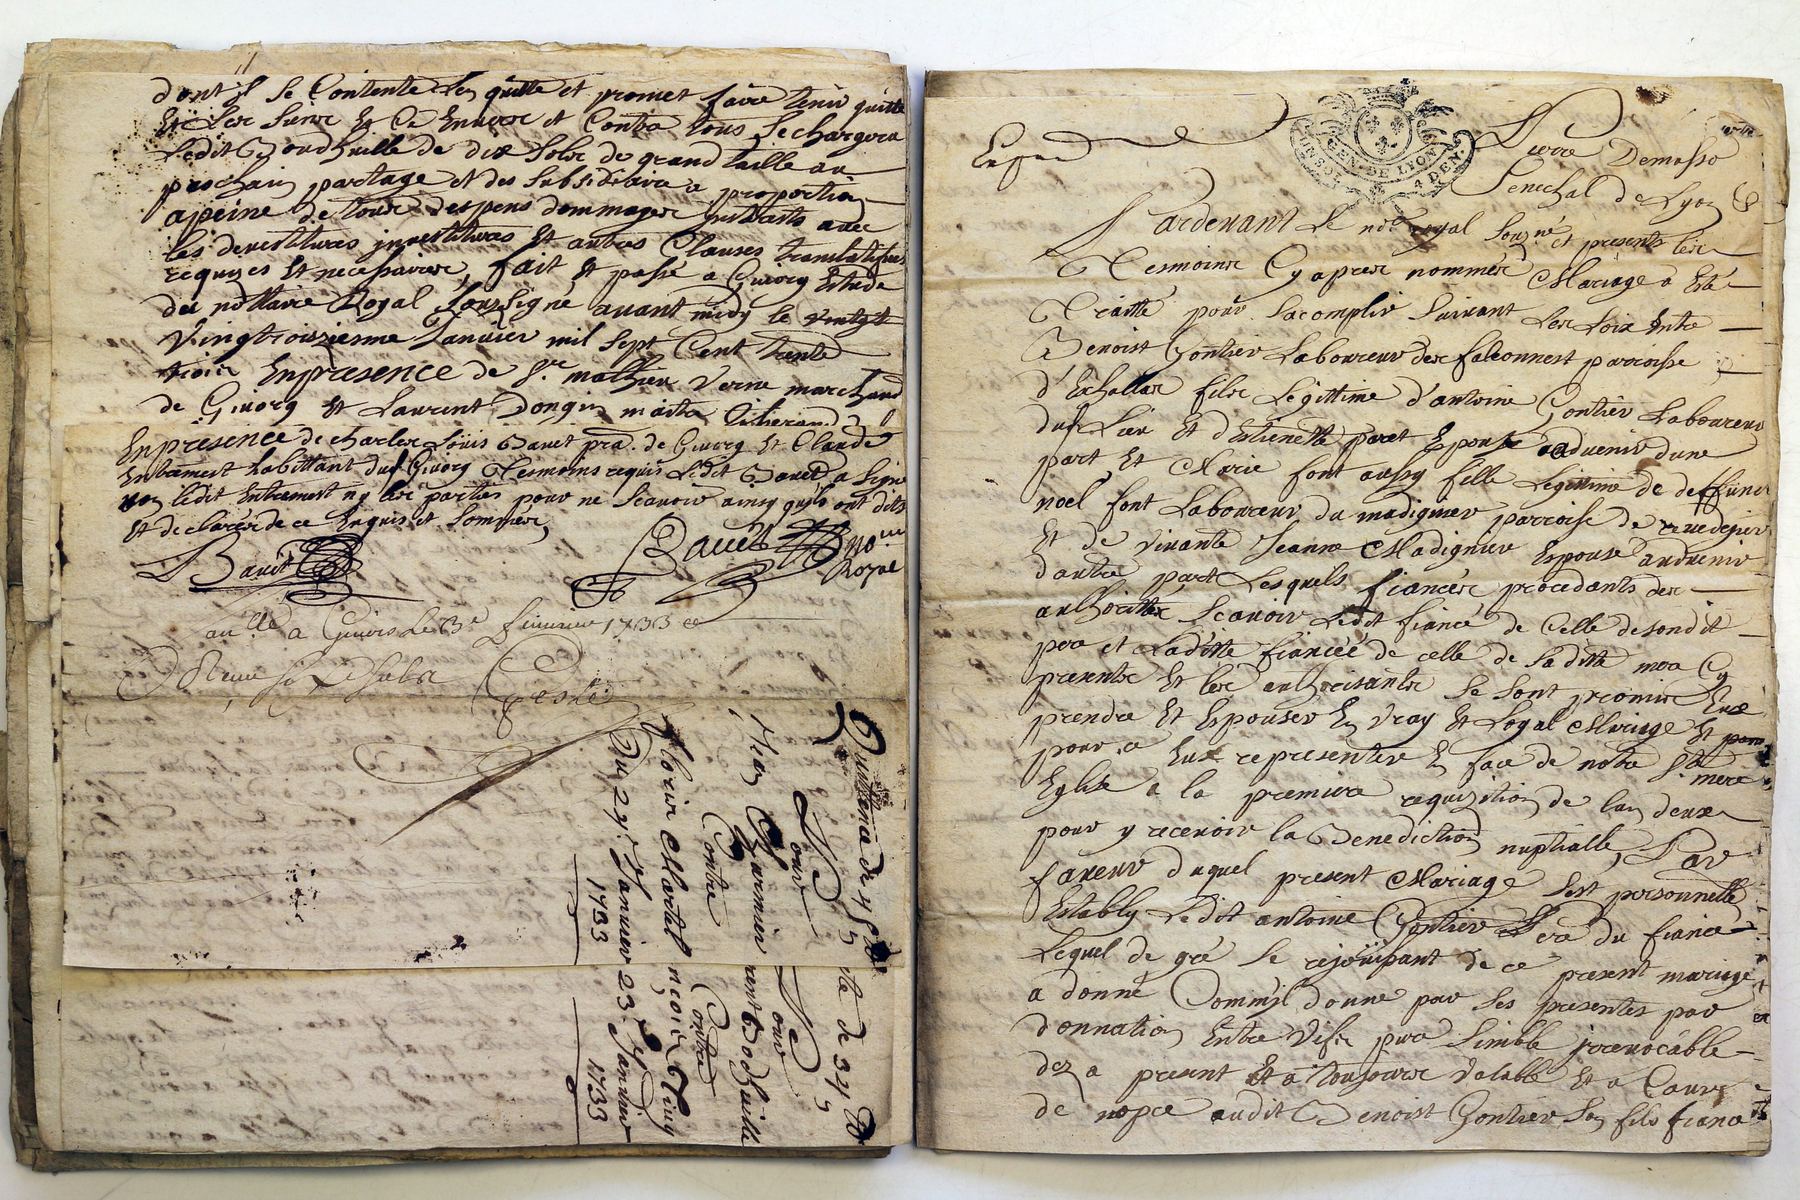 dont il se Contente len quitte et promet faire tenir quitte
Et Les siens Et Ce Envers et Contre tous Se chargera
Ledit Bondhuille de dix sols de grand taille au
prochain partage et des subsidiaire a proportion
apeine de tous despens dommages
les devestitures investitures Et autres Clauses translatifves
requizes Et necessaires, fait Et passé a Givorg Estude
du nottaire Royal Souzsigné avant midy le vintgt
Vingtroiziesme Janvier mil sept Cent trente
trois Enpresence de Sr. mathieu Verne marchand
de Givorg Et Laurent Dongin maitre tisserand
Enpresence de charles Louis Bavet pra. de Givorg Et Claude
Entremest habittant dud Givorg Tesmoins requis Ledit Bavet a signe
non ledit Entremest ny les parties pour ne scavoir ainsy quils ont dits
Et declarés de ce Enquis et sommés
Bavet
Bavet no.re Royal
a Givors Le 3e fevrier 1733
Quittance de 45
Pour
Charmier
Contre
Martel
Du 21: Janvier
1733
de 34
Pour
Contre
23: Janvier
1733
GEN. DE LYON
4 DEN.
Pierre Demasso
Senechal de Lyon
Pardevant Le not. royal Souzné et presents les
Tesmoins Cy apres nommés Mariage a Esté
Traitté pour Sacomplir Suivant Les Loix Entre
Benoist Gontier Laboureur des falconnest parroisse
d'Echallas fils Legittime d'antoine Gontier Laboureur
dud Lieu Et d'Estienette paret Epoux advenir dune
part Et Marie font aussy fille Legittime de deffunct
noel font Laboureur du madignier parroisse de
Et de vivante Jeanne Madignier Espouse advenir
dautre part Lesquels fiancés procedants des
authorittés Scavoir Ledit fiancé de Celle desondit
pere et Laditte fiancée de celle de saditte mere Cy
presents Et les authorisants se sont promis Eux
prendre Et Espouser En vray Et Loyal Mariage Et pour
pour a Eux representer En face de notre Ste mere
Eglise a la premiere requizition de lun deux
pour y recevoir la Benediction nuptialle, Par
faveur duquel present Mariage sest personnelle
Estably Ledit antoine Gontier Pere du fiancé
Lequel de gré se rejouissant de ce present mariage
a donné Comm'il donne par ses presentes par
donnation Entre Vifs pure simble irrevocable
dez a present Et a toujours valable Et a Cause
de nopce audit Benoist Gontier son fils fiancé